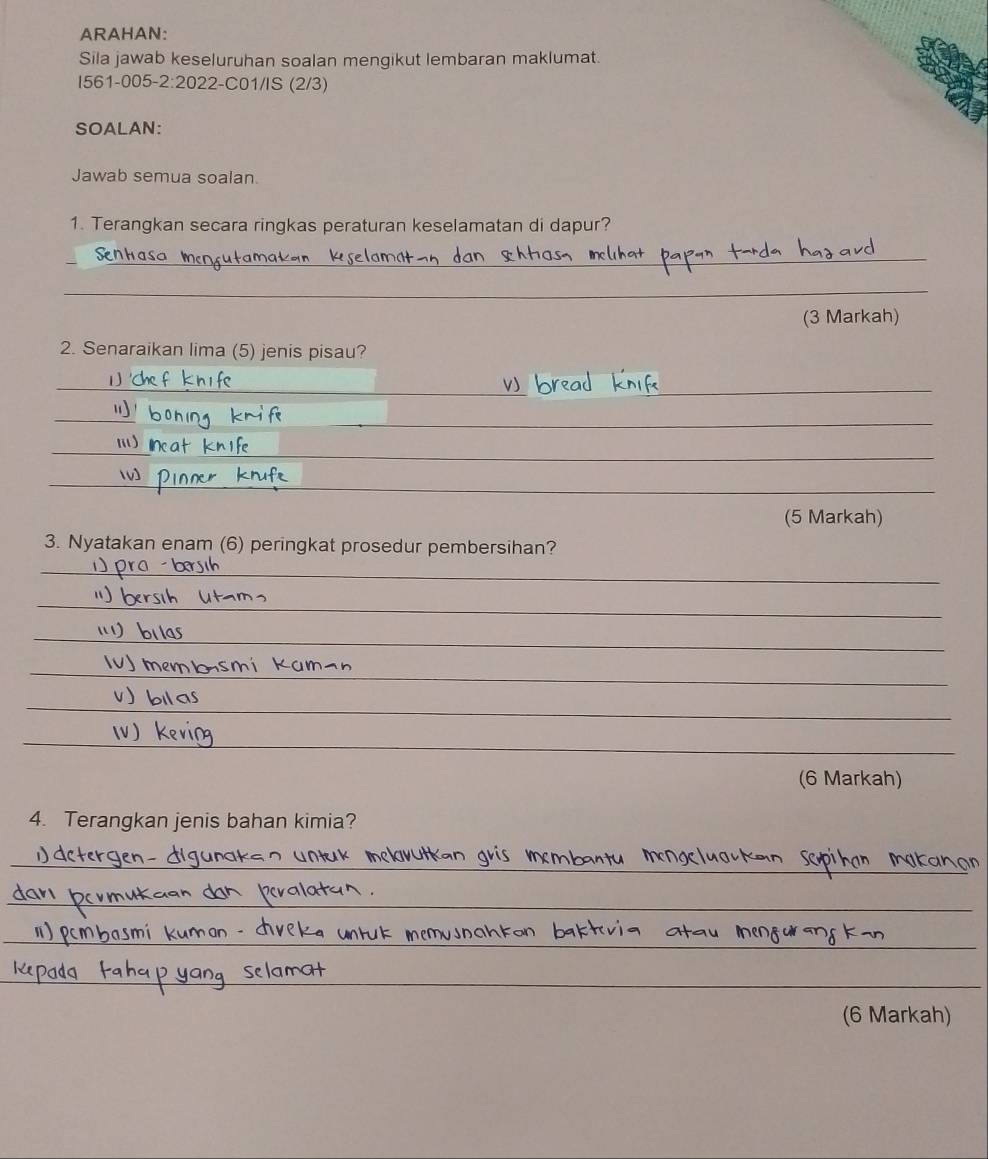 ARAHAN:
Sila jawab keseluruhan soalan mengikut lembaran maklumat.
I561-005-2:2022-C01/IS (2/3)
SOALAN:
Jawab semua soalan.
1. Terangkan secara ringkas peraturan keselamatan di dapur?
Senhasa mengutamakan keselamatan dan senhiasa melihat papan tanda hazard
(3 Markah)
2. Senaraikan lima (5) jenis pisau?
i) chef knife
v) bread knife
ii) boning knife
iii) meat knife
iv) pinner knife
(5 Markah)
3. Nyatakan enam (6) peringkat prosedur pembersihan?
i) pra - bersih
ii) bersih utama
iii) bilas
iv) membasmi kaman
v) bilas
iv) kering
(6 Markah)
4. Terangkan jenis bahan kimia?
i) detergen - digunakan untuk melarutkan gris membantu mengeluarkan serpihan makanan
dari permukaan dan peralatan.
ii) pembasmi kuman - direka untuk memusnahkan bakteria atau mengurangkan
kepada tahap yang selamat
(6 Markah)